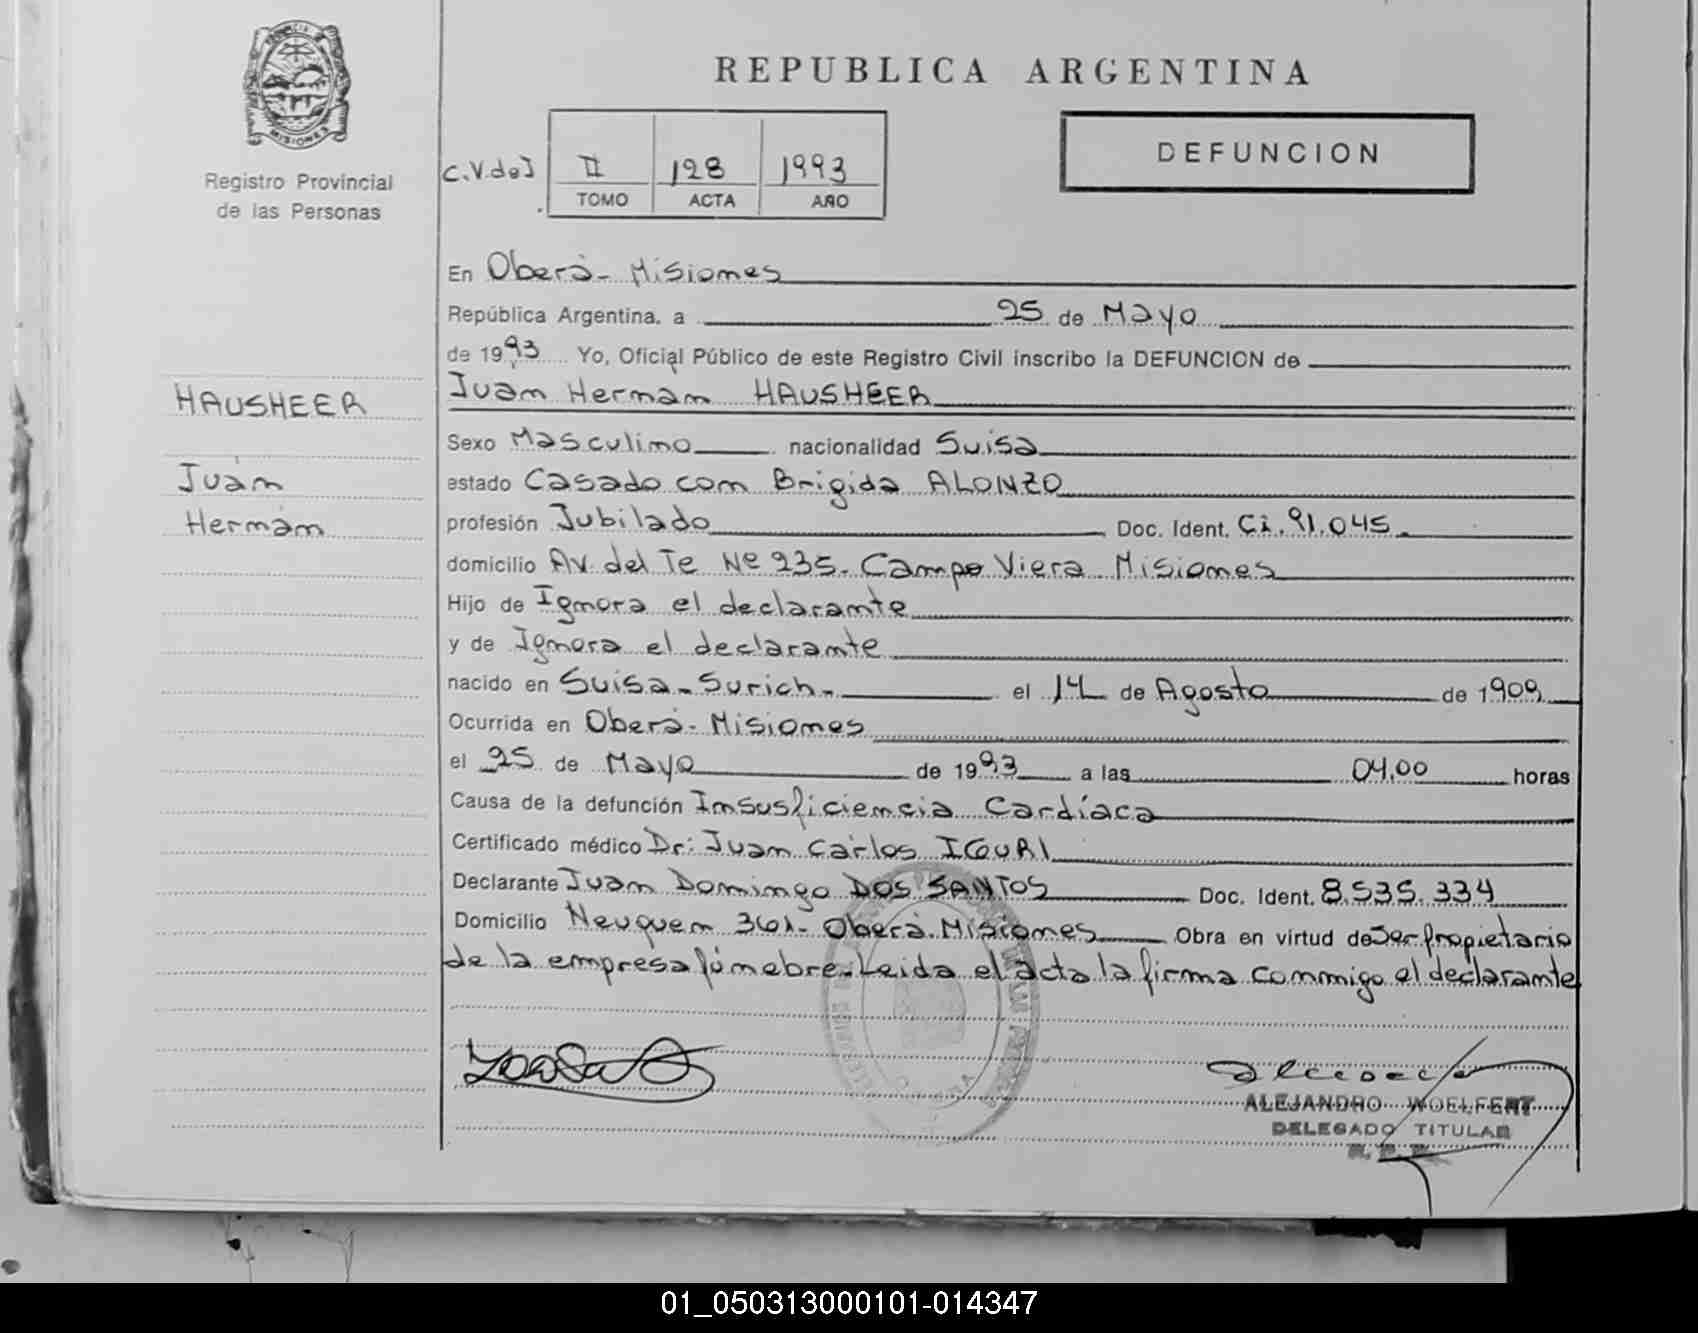 REPUBLICA ARGENTINA
MISIONES
Registro Provincial
de las Personas
C.V.deJ
II 128 1993
TOMO ACTA AÑO
DEFUNCION
En Oberá - Misiones
República Argentina, a 25 de Mayo
de 1993 Yo, Oficial Público de este Registro Civil inscribo la DEFUNCION de
Juan Herman HAUSHEER
HAUSHEER
Juan
Herman
Sexo Masculino nacionalidad Suisa
estado Casado con Brigida ALONZO
profesión Jubilado Doc. Ident. Ci. 91.045
domicilio Av. del Te Nº 235. Campo Viera Misiones
Hijo de Ignora el declarante
y de Ignora el declarante
nacido en Suisa - Surich - el 14 de Agosto de 1909
Ocurrida en Oberá - Misiones
el 25 de Mayo de 1993 a las 04,00 horas
Causa de la defunción Insusficiencia Cardíaca
Certificado médico Dr: Juan Carlos IGURI
Declarante Juan Domingo DOS SANTOS Doc. Ident. 8.535.334
Domicilio Neuquen 361 - Oberá. Misiones Obra en virtud de Ser propietario
de la empresa fúnebre. Leida el acta la firma conmigo el declarante
ALEJANDRO WOELFERT
DELEGADO TITULAR
01_050313000101-014347